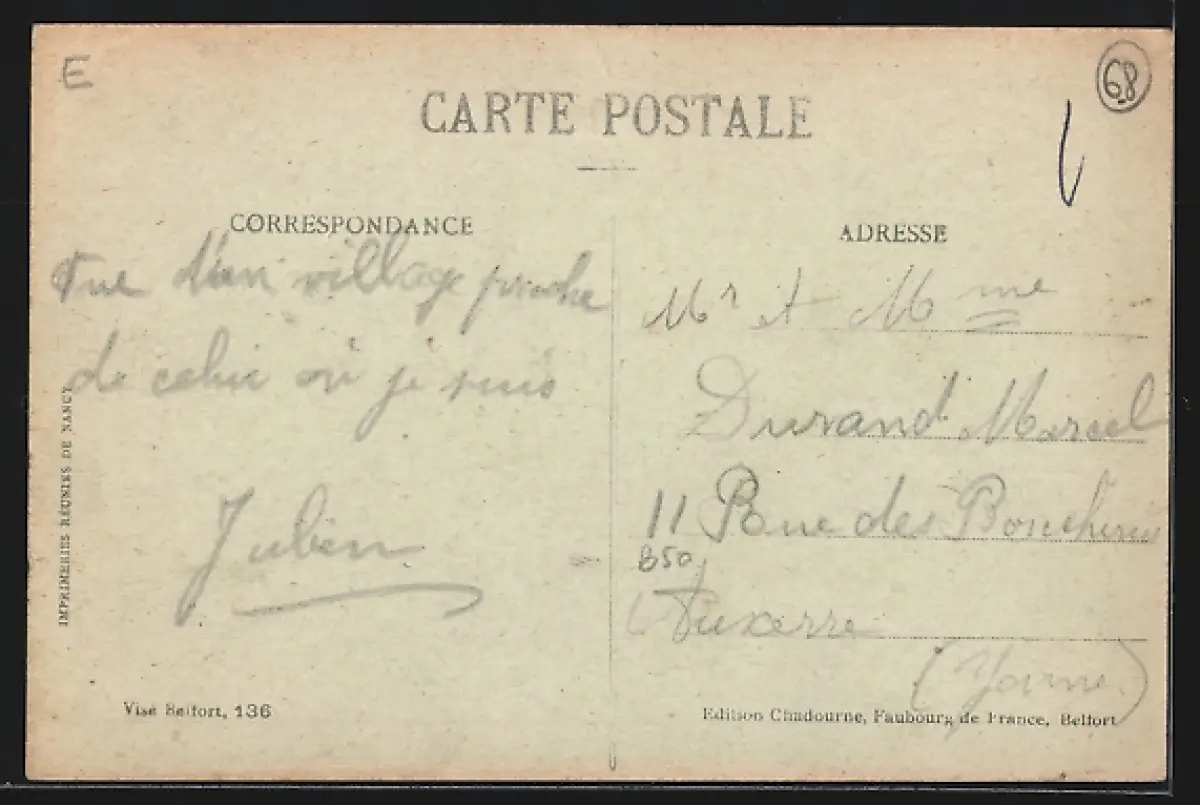 E
68
CARTE POSTALE
CORRESPONDANCE
Vue d'un village proche
de celui où je suis
Julien
IMPRIMERIES RÉUNIES DE NANCY
Visé Belfort, 136
ADRESSE
Mr et Mme
Durand Marcel
11 Rue des Boucheries
B50
Auxerre
(Yonne)
Edition Chadourne, Faubourg de France, Belfort